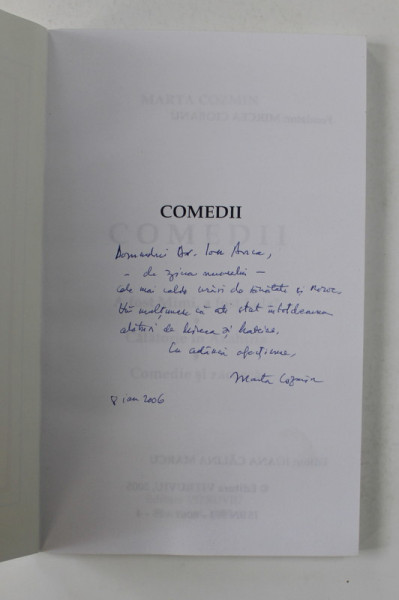 COMEDII
Domnului Dr. Ion Anca,
– de ziua numelui –
cele mai calde urări de sănătate și noroc.
Vă mulțumesc că ați stat întotdeauna
alături de Mircea și
Cu adâncă afecțiune,
Marta Cozmin
8 ian 2006